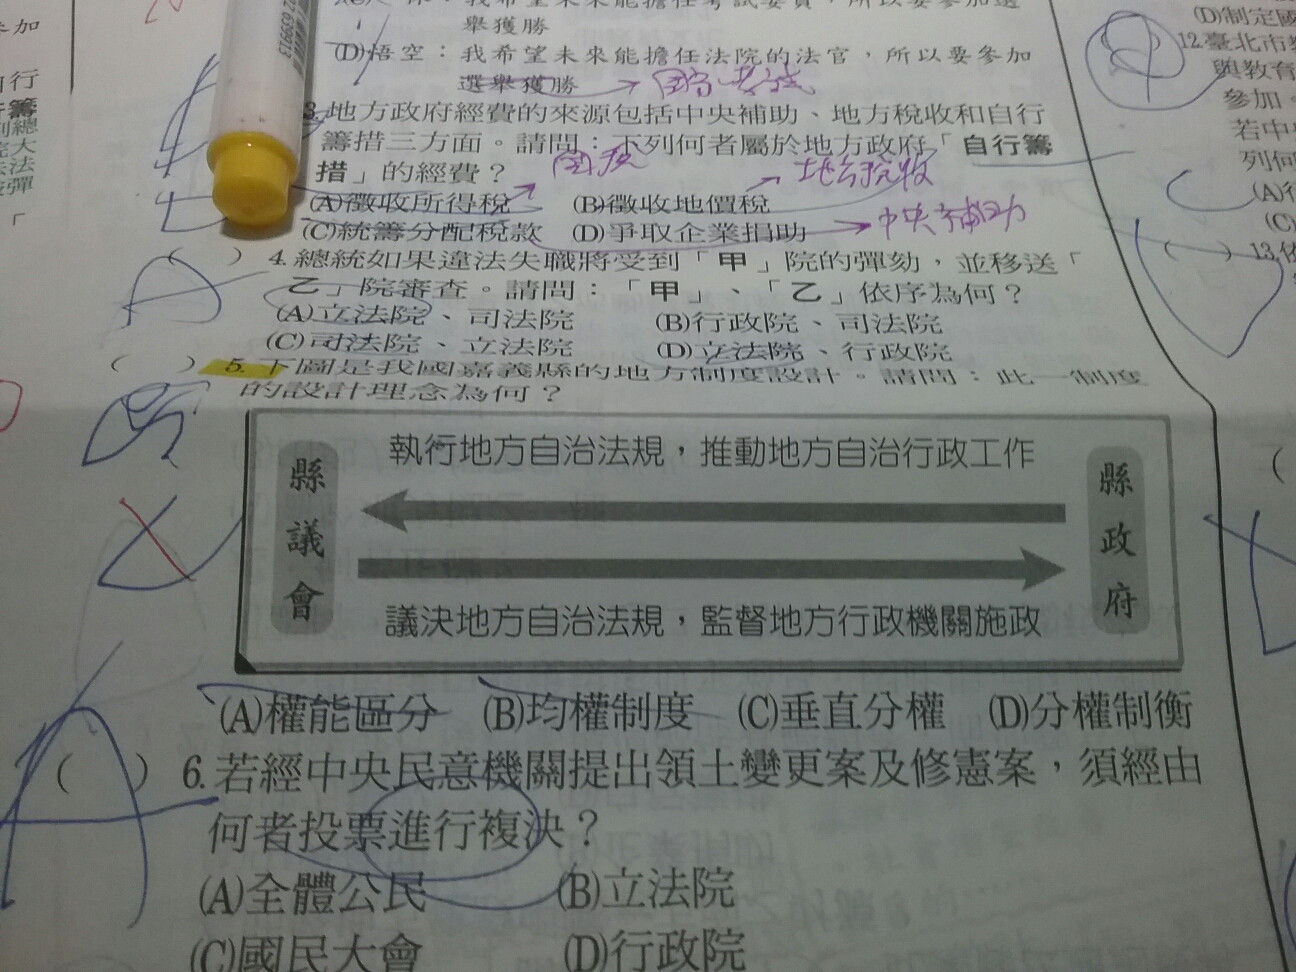 舉獲勝
(D)悟空：我希望未來能擔任法院的法官，所以要參加
選舉獲勝
3.地方政府經費的來源包括中央補助、地方稅收和自行
籌措三方面。請問：下列何者屬於地方政府「自行籌
措」的經費？
國稅
地方稅收
(A)徵收所得稅 (B)徵收地價稅
(C)統籌分配稅款 (D)爭取企業捐助
中央補助
( ) 4.總統如果違法失職將受到「甲」院的彈劾，並移送「
乙」院審查。請問：「甲」、「乙」依序為何？
(A)立法院、司法院 (B)行政院、司法院
(C)司法院、立法院 (D)立法院、行政院
( ) 5.下圖是我國嘉義縣的地方制度設計。請問：此一制度
的設計理念為何？
執行地方自治法規，推動地方自治行政工作
縣議會
縣政府
議決地方自治法規，監督地方行政機關施政
(A)權能區分 (B)均權制度 (C)垂直分權 (D)分權制衡
( ) 6.若經中央民意機關提出領土變更案及修憲案，須經由
何者投票進行複決？
(A)全體公民 (B)立法院
(C)國民大會 (D)行政院
(D)制定國
12.臺北市
與教育
參加。
若中
列何
(A)
(C)
( ) 13.依